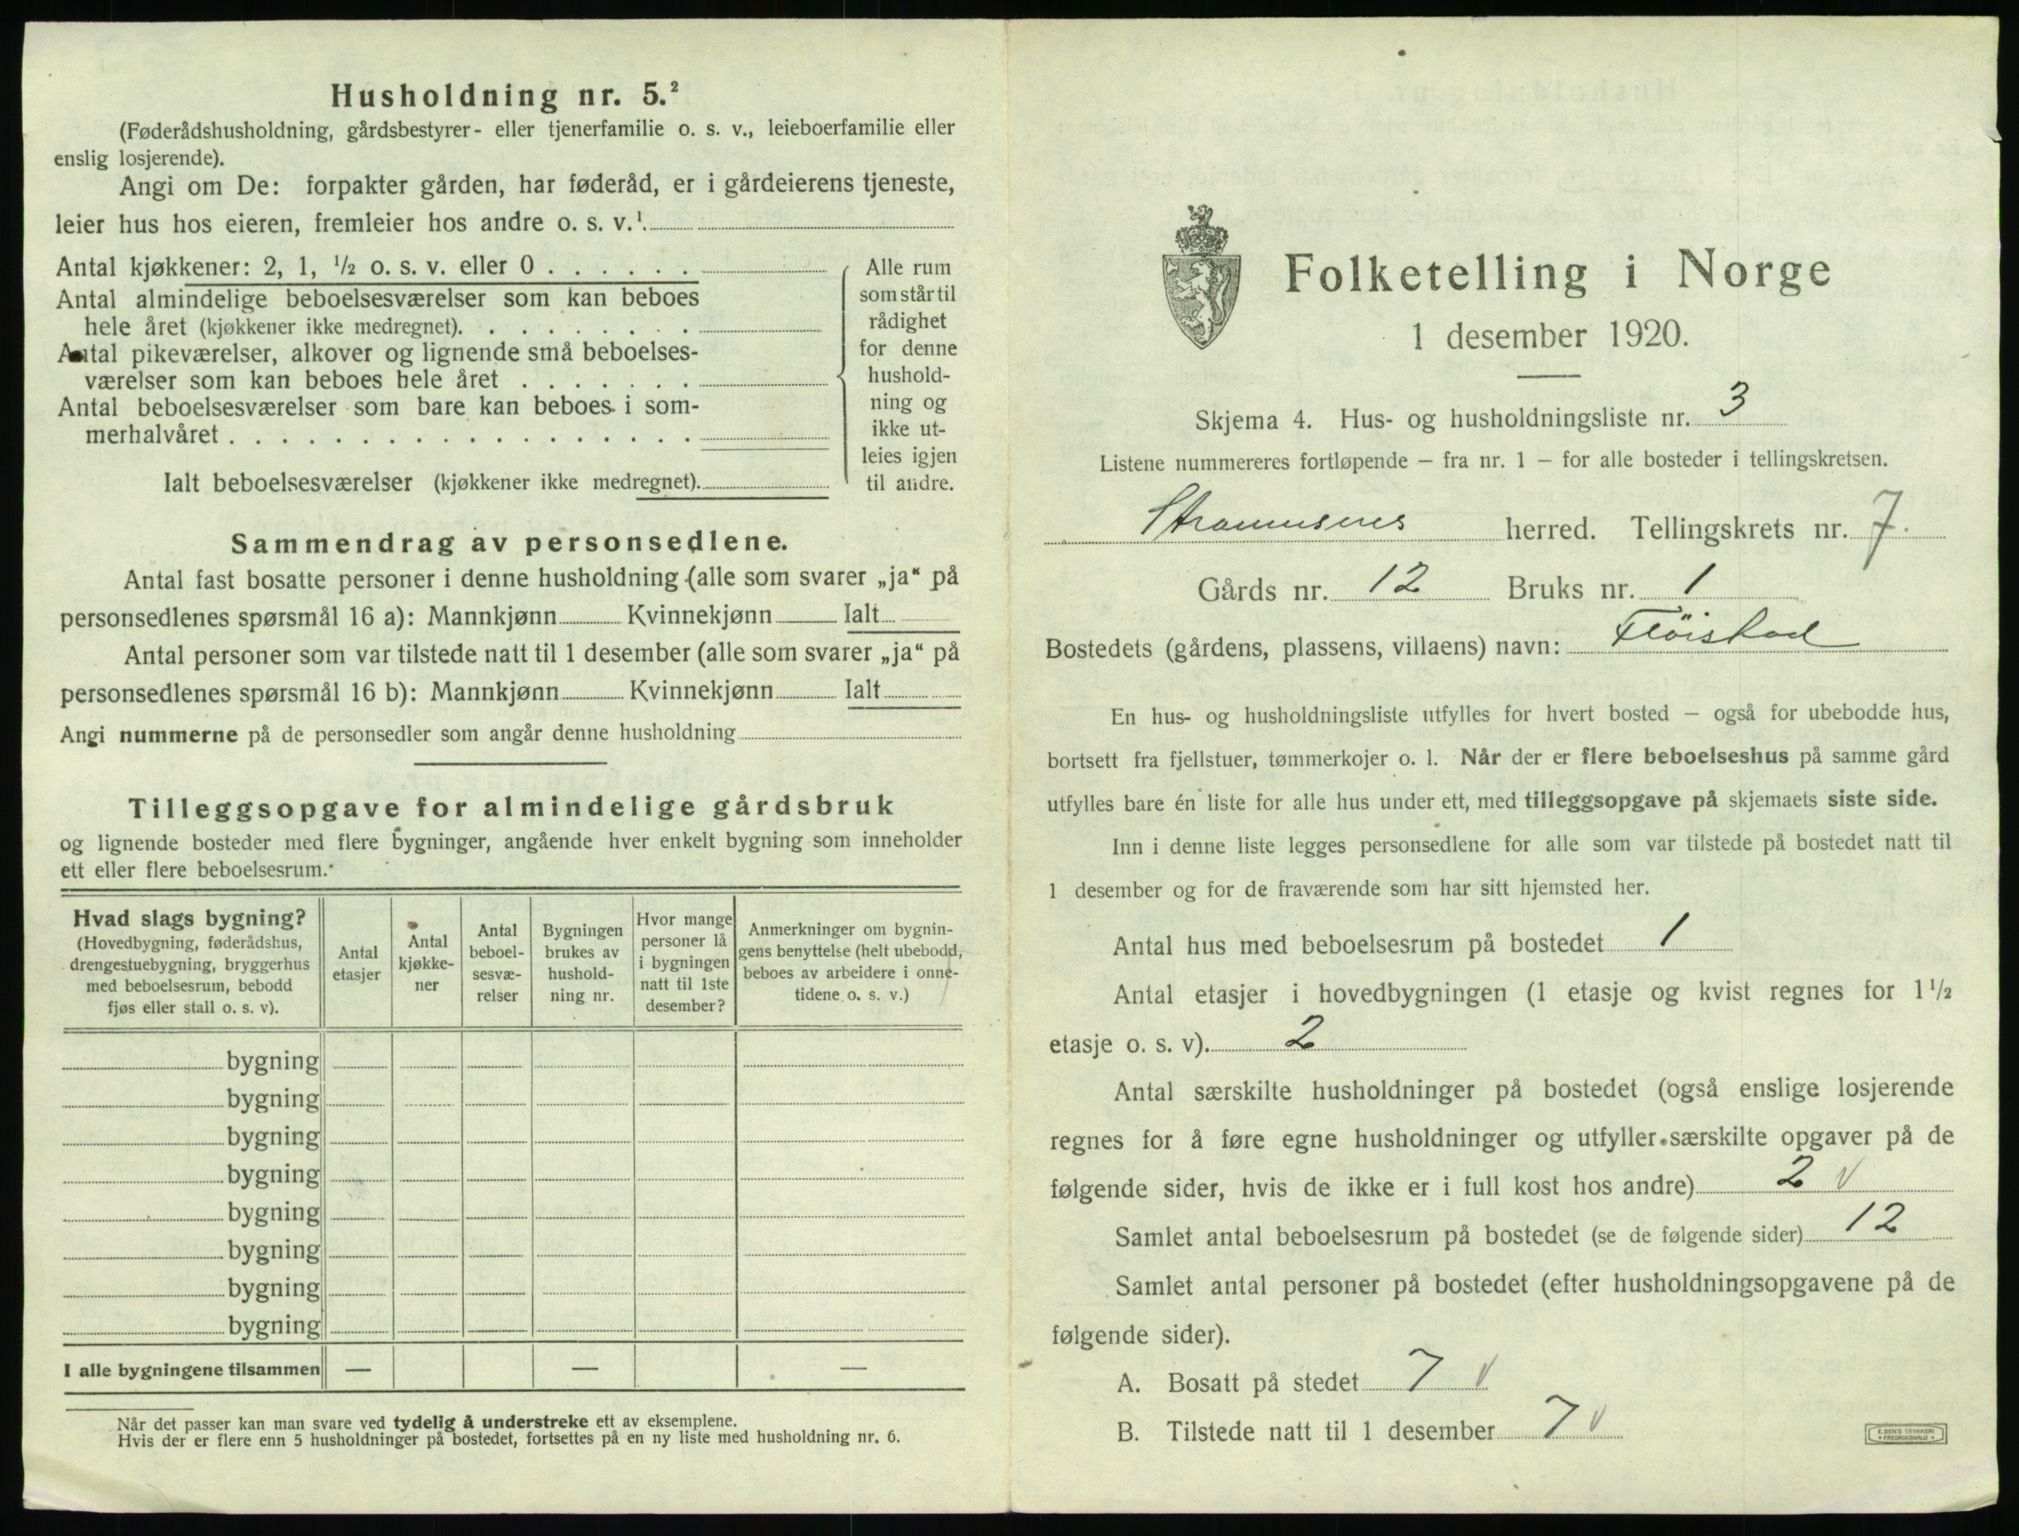 Husholdning nr. 5.²
(Føderådshusholdning, gårdsbestyrer- eller tjenerfamilie o. s. v., leieboerfamilie eller
enslig losjerende).
Angi om De: forpakter gården, har føderåd, er i gårdeierens tjeneste,
leier hus hos eieren, fremleier hos andre o. s. v.¹
Antal kjøkkener: 2, 1, ½ o. s. v. eller 0 . . . . . .
Antal almindelige beboelsesværelser som kan beboes
hele året (kjøkkener ikke medregnet). . . . . . . . .
Antal pikeværelser, alkover og lignende små beboelses-
værelser som kan beboes hele året . . . . . . .
Antal beboelsesværelser som bare kan beboes i som-
merhalvåret . . . . . . . . . . . . . . . . . .
Ialt beboelsesværelser (kjøkkener ikke medregnet).
Alle rum
som står til
rådighet
for denne
hushold-
ning og
ikke ut-
leies igjen
til andre.
Sammendrag av personsedlene.
Antal fast bosatte personer i denne husholdning (alle som svarer „ja“ på
personsedlenes spørsmål 16 a): Mannkjønn Kvinnekjønn Ialt
Antal personer som var tilstede natt til 1 desember (alle som svarer „ja“ på
personsedlenes spørsmål 16 b): Mannkjønn Kvinnekjønn Ialt
Angi nummerne på de personsedler som angår denne husholdning
Tilleggsopgave for almindelige gårdsbruk
og lignende bosteder med flere bygninger, angående hver enkelt bygning som inneholder
ett eller flere beboelsesrum.
Hvad slags bygning?
(Hovedbygning, føderådshus,
drengestuebygning, bryggerhus
med beboelsesrum, bebodd
fjøs eller stall o. s. v).
Antal
etasjer
Antal
kjøkke-
ner
Antal
beboel-
sesvæ-
relser
Bygningen
brukes av
hushold-
ning nr.
Hvor mange
personer lå
i bygningen
natt til 1ste
desember?
Anmerkninger om bygnin-
gens benyttelse (helt ubebodd,
beboes av arbeidere i onne-
tidene o. s. v.)
bygning
bygning
bygning
bygning
bygning
bygning
bygning
bygning
I alle bygningene tilsammen — — —
Når det passer kan man svare ved tydelig å understreke ett av eksemplene.
Hvis der er flere enn 5 husholdninger på bostedet, fortsettes på en ny liste med husholdning nr. 6.
Folketelling i Norge
1 desember 1920.
Skjema 4. Hus- og husholdningsliste nr. 3
Listene nummereres fortløpende — fra nr. 1 — for alle bosteder i tellingskretsen.
herred. Tellingskrets nr. 7.
Gårds nr. 12 Bruks nr. 1
Bostedets (gårdens, plassens, villaens) navn: Fløistad
En hus- og husholdningsliste utfylles for hvert bosted — også for ubebodde hus,
bortsett fra fjellstuer, tømmerkojer o. l. Når der er flere beboelseshus på samme gård
utfylles bare én liste for alle hus under ett, med tilleggsopgave på skjemaets siste side.
Inn i denne liste legges personsedlene for alle som var tilstede på bostedet natt til
1 desember og for de fraværende som har sitt hjemsted her.
Antal hus med beboelsesrum på bostedet 1
Antal etasjer i hovedbygningen (1 etasje og kvist regnes for 1½
etasje o. s. v). 2
Antal særskilte husholdninger på bostedet (også enslige losjerende
regnes for å føre egne husholdninger og utfyller særskilte opgaver på de
følgende sider, hvis de ikke er i full kost hos andre) 2 v
Samlet antal beboelsesrum på bostedet (se de følgende sider) 12
Samlet antal personer på bostedet (efter husholdningsopgavene på de
følgende sider).
A. Bosatt på stedet 7 v
B. Tilstede natt til 1 desember 7 v
E. SEM'S TRYKKERI
FREDRIKSHALD